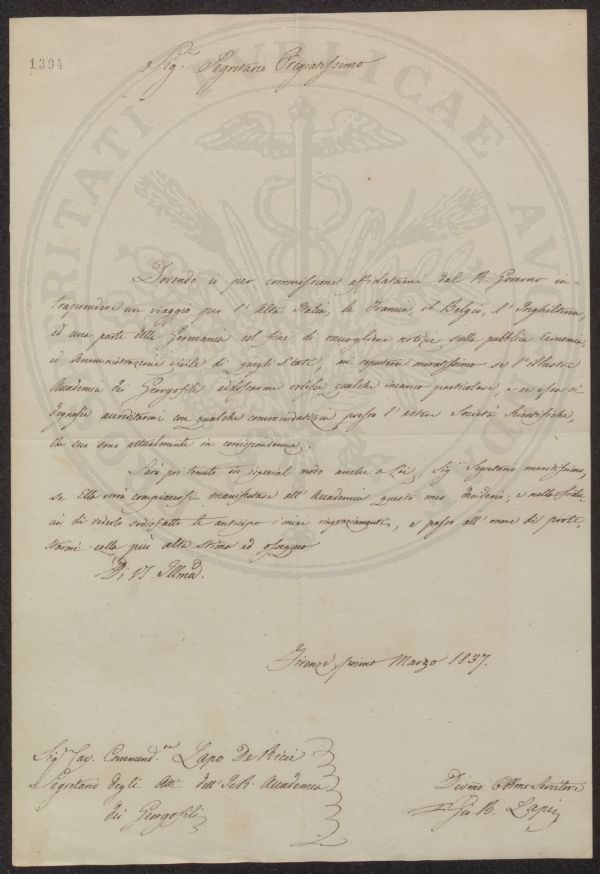 1394
Sig.r Segretario Pregiatissimo
Dovendo io per commissione affidatami dal R. Governo in-
traprendere un viaggio per l'Alta Italia, la Francia, il Belgio, l'Inghilterra,
ed una parte della Germania col fine di raccogliere notizie sulla pubblica economia,
ed Amministrazione civile di quegli Stati, mi reputerei onoratissimo se l'illustre
Accademia dei Georgofili addossarmi volesse qualche incarico particolare, e se essa si
degnasse accreditarmi con qualche commendatizia presso l'estere Società Scientifiche,
che seco sono attualmente in corrispondenza.
Sarò poi tenuto in ispecial modo anche a Lei, Sig.r Segretario meritissimo,
se Ella vorrà compiacersi manifestare all'Accademia questo mio desiderio; e nella fidu-
cia di vederlo sodisfatto le anticipo i miei ringraziamenti, e passo all'onore di prote-
starmi colla più alta stima ed ossequio
Di V. S. Illma
Firenze primo Marzo 1837.
Sig.r Cav. Commend.re Lapo De Ricci
Segretario degli Atti dell'I. e R. Accademia
dei Georgofili
Devmo Obbmo Servitore
Gio. B. Lapi